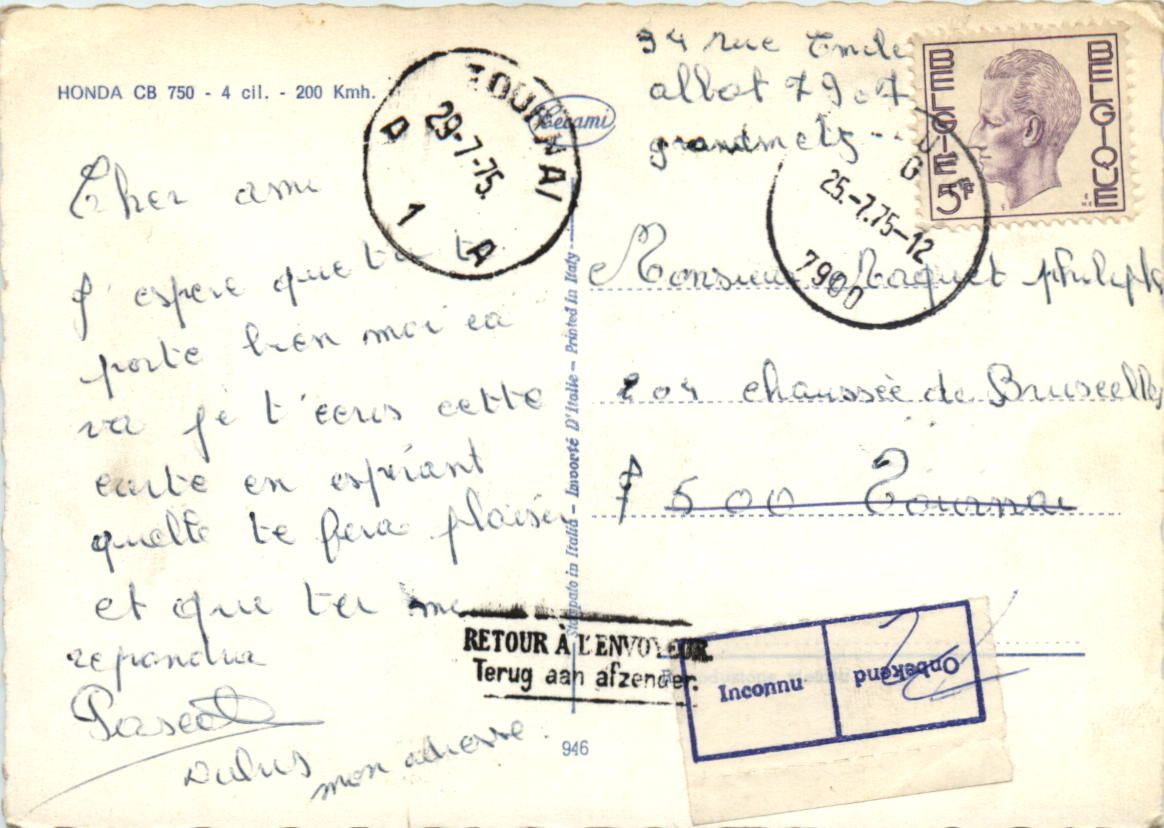 HONDA CB 750 - 4 cil. - 200 Kmh.
Cecami
TOURNAI
29-7-75
A 1 A
94 rue Emile
allot 7907
grandmetz
BELGIE BELGIQUE
5F
25.-7.75-12
7900
Cher ami
J'espere que tu t
porte bien moi ca
va je t'ecris cette
carte en espérant
quelle te fera plaisir
et que tu me
repondra
Pascal
mon adresse
Monsieur Maquet philippe
204 chaussée de Bruxelles
7500 Tournai
Stampato in Italia - Importé D'Italie - Printed in Italy
RETOUR À L'ENVOYEUR
Terug aan afzender.
Inconnu
Onbekend
946